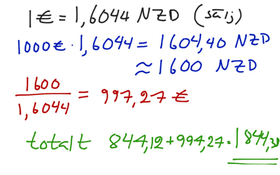 1€ = 1,6044 NZD (sälj)
1000€ · 1,6044 = 1604,40 NZD
≈ 1600 NZD
1600/1,6044 = 997,27 €
totalt 844,12+997,27 · 1844,39